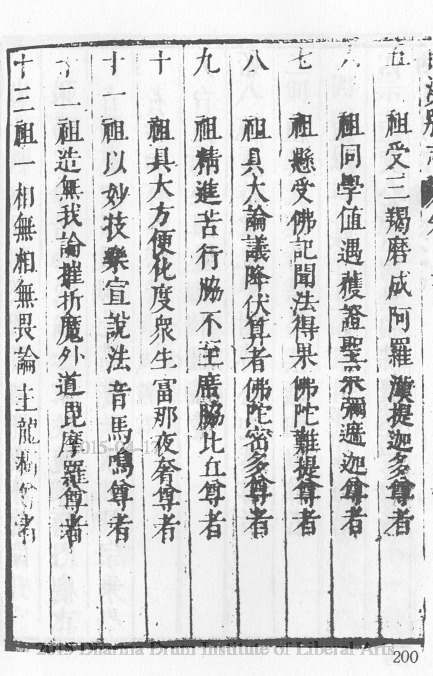 五　祖受三羯磨成阿羅漢提迦多尊者
六　祖同學值遇獲證聖示彌遮迦尊者
七　祖懸受佛記聞法得果佛陀難提尊者
八　祖具大論議降伏算者佛陀密多尊者
九　祖精進苦行脇不至席脇比丘尊者
十　祖具大方便化度衆生富那夜奢尊者
十一　祖以妙技樂宣說法音馬鳴尊者
十二　祖造無我論摧折魔外道毘摩羅尊者
十三　祖一相無相無畏論主龍樹尊者
2015 Dharma Drum Institute of Liberal Arts
200